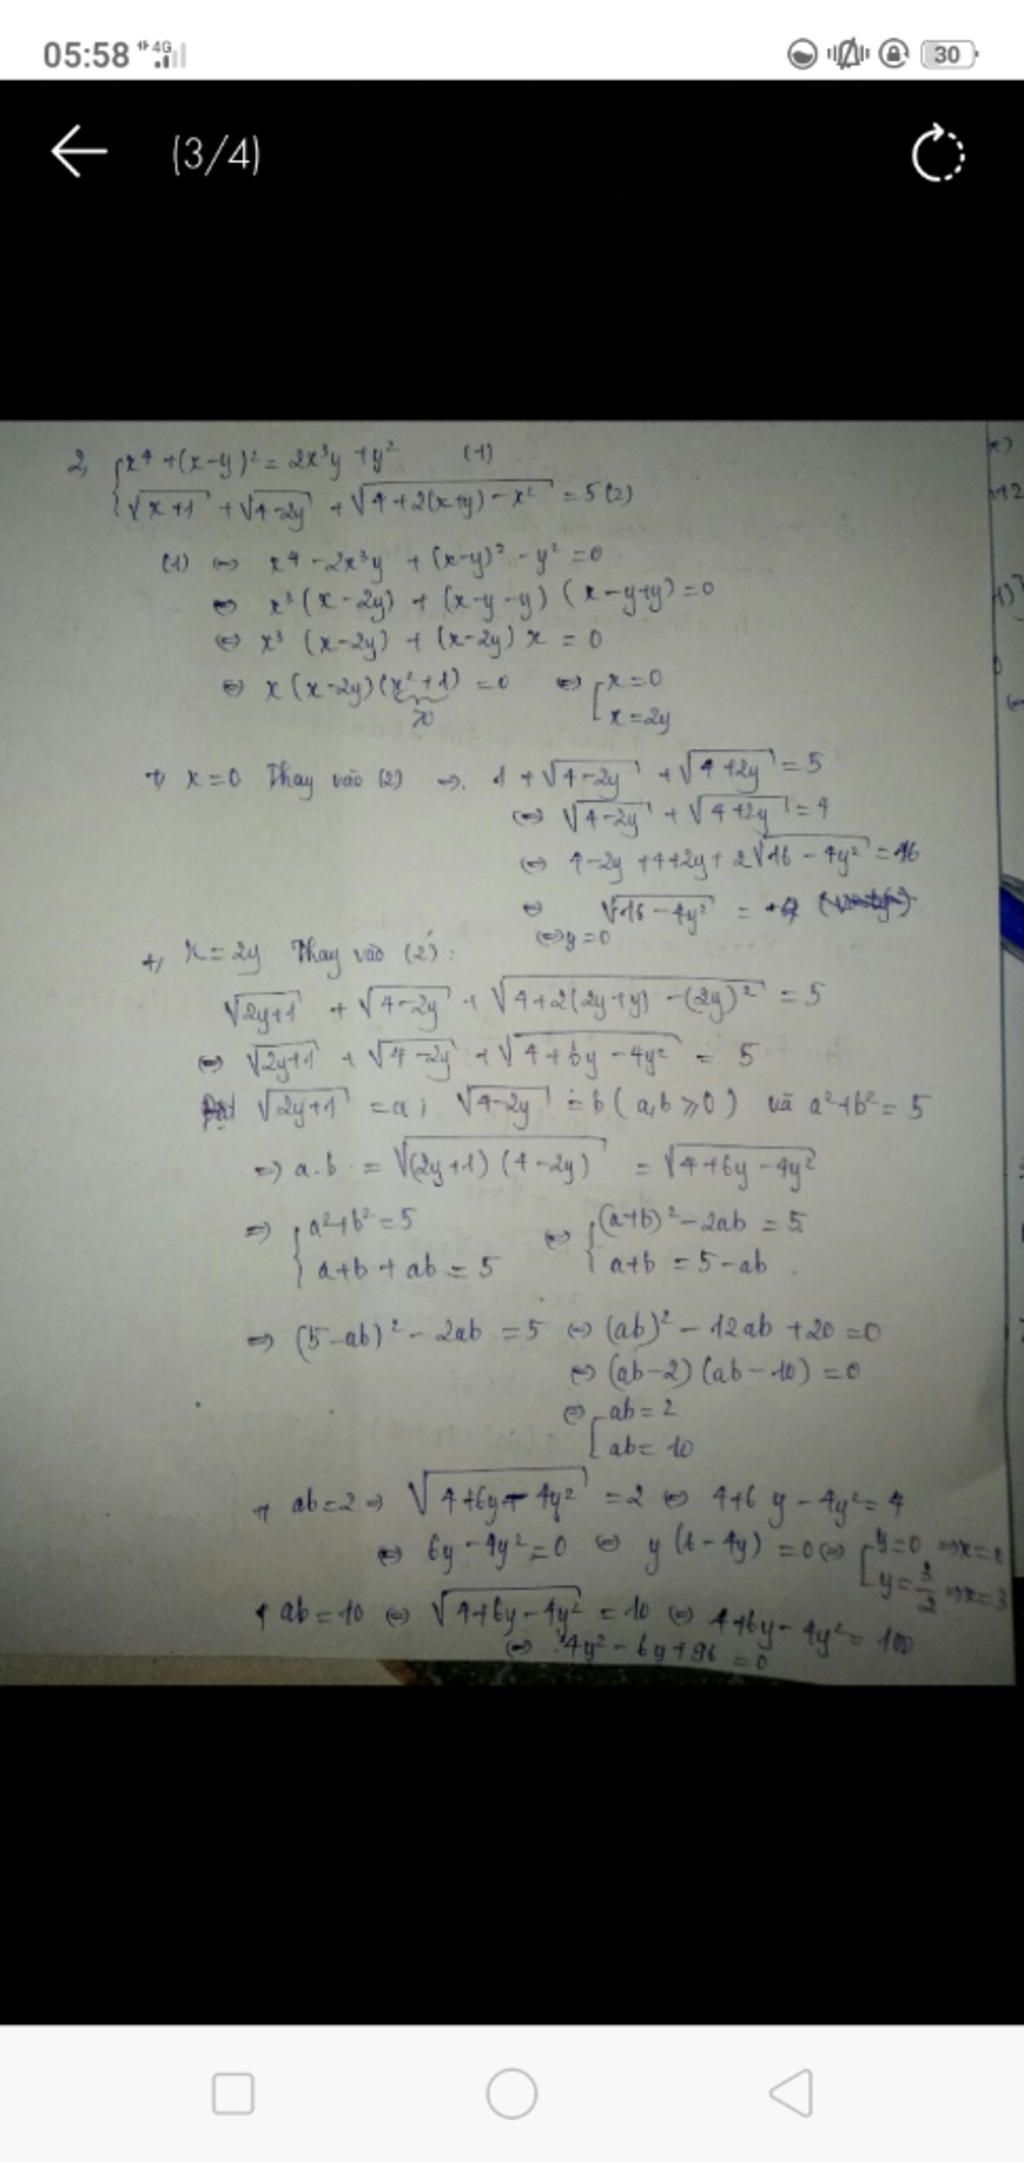 05:58 4G 30
(3/4)
2, { x⁴ + (x-y)² = 2x³y + y² (1)
{ √(x+1) + √(4-2y) + √(4+2(x+y)-x²) = 5 (2)
(1) ⇔ x⁴ - 2x³y + (x-y)² - y² = 0
⇔ x³(x-2y) + (x-y-y)(x-y+y) = 0
⇔ x³ (x-2y) + (x-2y) x = 0
⇔ x(x-2y)(x²+1) = 0 ⇔ [ x=0
>0 [ x=2y
+, x=0 Thay vào (2) ⇒. 1 + √(4-2y) + √(4+2y) = 5
⇔ √(4-2y) + √(4+2y) = 4
⇔ 4-2y+4+2y+2√(16-4y²) = 16
⇔ √(16-4y²) = 4
⇔ y=0
+, x=2y Thay vào (2):
√(2y+1) + √(4-2y) + √(4+2(2y+y)-(2y)²) = 5
⇔ √(2y+1) + √(4-2y) + √(4+6y-4y²) = 5
Đặt √(2y+1) = a; √(4-2y) = b (a,b ≥ 0) và a²+b² = 5
⇒ a.b = √((2y+1)(4-2y)) = √(4+6y-4y²)
⇒ { a²+b²=5 ⇔ { (a+b)²-2ab = 5
{ a+b+ab = 5 { a+b = 5-ab.
⇒ (5-ab)² - 2ab = 5 ⇔ (ab)² - 12ab + 20 = 0
⇔ (ab-2)(ab-10) = 0
⇔ [ ab = 2
[ ab = 10
+ ab=2 ⇒ √(4+6y-4y²) = 2 ⇔ 4+6y-4y² = 4
⇔ 6y-4y²=0 ⇔ y(6-4y) = 0 ⇔ [ y=0 ⇒ x=
[ y=3/2 ⇒ x=3
+ ab=10 ⇔ √(4+6y-4y²) = 10 ⇔ 4+6y-4y² = 100
⇔ 4y²-6y+96 = 0